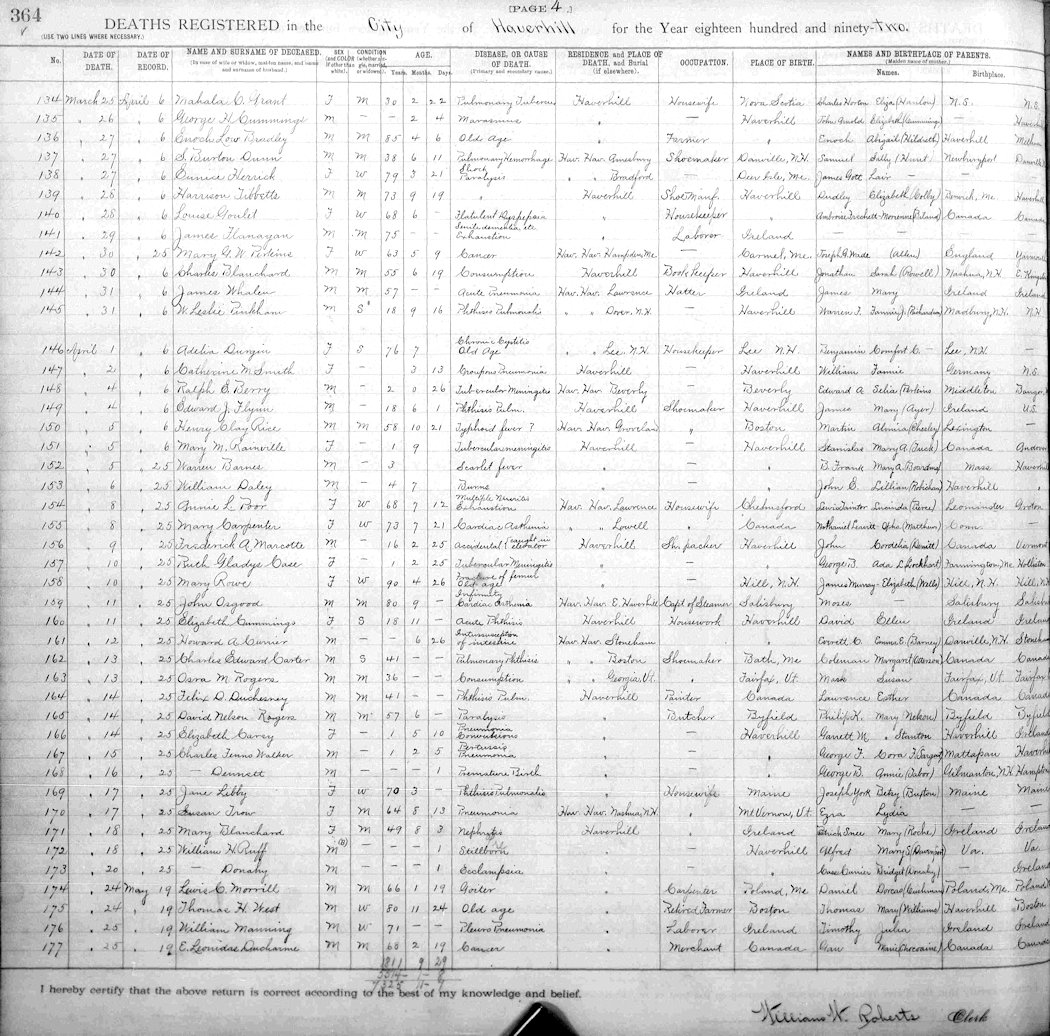 364
[PAGE 4.]
DEATHS REGISTERED in the City of Haverhill for the Year eighteen hundred and ninety-two.
(USE TWO LINES WHERE NECESSARY.)
No. DATE OF DEATH. DATE OF RECORD. NAME AND SURNAME OF DECEASED. SEX CONDITION AGE. DISEASE, OR CAUSE OF DEATH. RESIDENCE and PLACE OF DEATH, and Burial (if elsewhere). OCCUPATION. PLACE OF BIRTH. NAMES AND BIRTHPLACE OF PARENTS.
(In case of wife or widow, maiden name, and name and surname of husband.) (and COLOR if other than white). (whether single, married, or widowed). Years. Months. Days. (Primary and secondary name). (Maiden name of mother.) Names. Birthplace.
134 March 25 April 6 Mahala C. Grant F M 30 2 22 Haverhill Housewife Nova Scotia Charles Horton Eliza (Hanlon) N.S. N.S.
135 " 26 " 6 George H Cummings M — — 2 4 Marasmus " — Haverhill John Arnold Elizabeth (Cummings) — Haverhill
136 " 27 " 6 Enoch Low Bradley M M 85 4 6 Old Age " Farmer " Enoch Abigail (Hildreth) Haverhill
137 " 27 " 6 S. Burton Dunn M M 38 6 11 Pulmonary Hemorrhage Hav. Hav. Amesbury Shoemaker Danville, N.H. Samuel Sally (Hunt) Newburyport
138 " 27 " 6 Eunice Herrick F W 79 3 21 Shock Paralysis " " Bradford — Deer Isle, Me. James Gott Lair — —
139 " 28 " 6 Harrison Tibbetts M M 73 9 19 " Haverhill Shoe Manf. Haverhill Dudley Elizabeth (Colby) Berwick, Me. Haverhill
140 " 28 " 6 Louise Goulet F W 68 6 — Flatulent Dyspepsia " Housekeeper " Canada Canada
141 " 29 " 6 James Flanagan M M 75 — — Senile dementia, etc Exhaustion " Laborer Ireland — — —
142 " 30 " 25 Mary G. W. Perkins F W 63 5 9 Cancer Hav. Hav. Hampden, Me — Carmel, Me. Joseph G. Wade (Allen) England
143 " 30 " 6 Charles Blanchard M M 55 6 19 Consumption Haverhill Bookkeeper Haverhill Jonathan Sarah (Rowell) Nashua, N.H
144 " 31 " 6 James Whalen M M 57 — — Acute Pneumonia Hav. Hav. Lawrence Hatter Ireland James Mary Ireland Ireland
145 " 31 " 6 W. Leslie Pinkham M S 18 9 16 Phthisis Pulmonalis " " Dover, N.H — Haverhill Warren F. Fannie J. (Richardson) Madbury, N.H. N.H
146 April 1 " 6 Adelia Durgin F S 76 7 Chronic Cystitis Old Age " " Lee, N.H. Housekeeper Lee N.H Benjamin Comfort C. — Lee, N.H. —
147 " 2 " 6 Catherine M Smith F — — 3 13 Croupous Pneumonia Haverhill — Haverhill William Fannie Germany N.S.
148 " 4 " 6 Ralph E. Berry M — 2 0 26 Tubercular Meningitis Hav. Hav. Beverly — Beverly Edward A Selia (Perkins Middleton
149 " 4 " 6 Edward J. Flynn M — 18 6 1 Phthisis Pulm. Haverhill Shoemaker Haverhill James Mary (Ayer) Ireland U.S.
150 " 5 " 6 Henry Clay Rice M M 58 10 21 Typhoid fever ? Hav. Hav. Groveland " Boston Martin Almira (Cheeley) Lexington —
151 " 5 " 6 Mary M. Rainville F — 1 9 Tubercular meningitis Haverhill — Haverhill Stanislas Mary A. (Tuck) Canada
152 " 5 " 25 Warren Barnes M — 3 Scarlet fever " — " B. Frank Mary A. Mass Haverhill
153 " 6 " 25 William Daley M — 4 7 Burns " — " John E. Lillian (Robichau) Haverhill "
154 " 8 " 25 Annie L Poor F W 68 7 12 Multiple Neuritis Exhaustion Hav. Hav. Lawrence Housewife Chelmsford Lucinda (Pierce) Leominster Groton
155 " 8 " 25 Mary Carpenter F W 73 7 21 Cardiac Asthenia " " Lowell " Canada Conn. —
156 " 9 " 25 Frederick A Marcotte M — 16 2 25 Accidental (caught in elevator Haverhill Sh. packer Haverhill John Cordelia Canada Vermont
157 " 10 " 25 Ruth Gladys Case F 1 2 25 Tubercular Meningitis " — " George B. Ada L (Lockhart) Farmington, Me Holliston
158 " 10 " 25 Mary Rowe F W 90 4 26 Fracture of femur Old age " — Hill, N.H James Murray Elizabeth (Wells) Hill, N.H Hill, N.H
159 " 11 " 25 John Osgood M M 80 9 — Infirmity Cardiac Asthenia Hav. Hav. E. Haverhill Capt of Steamer Salisbury Moses — Salisbury
160 " 11 " 25 Elizabeth Cummings F S 18 11 — Acute Phthisis Haverhill Housework Haverhill David Ellen Ireland Ireland
161 " 12 " 25 Howard A Currier M — — 6 26 Intussusception of intestine Hav. Hav. Stoneham — " Danville, N.H Stoneham
162 " 13 " 25 Charles Edward Carter M S 41 — — Pulmonary Phthisis " " Boston Shoemaker Bath, Me Coleman Margaret Canada Canada
163 " 13 " 25 Osra M. Rogers M M 36 — — Consumption " " Georgia, Vt. " Fairfax, Vt. Mask Susan Fairfax, Vt. Fairfax
164 " 14 " 25 Felix D. Duchesney M M 41 — — Phthisis Pulm. Haverhill Painter Canada Lawrence Esther Canada Canada
165 " 14 " 25 David Nelson Rogers M M 57 6 — Paralysis " Butcher Byfield Philip K. Mary Nelson) Byfield Byfield
166 " 14 " 25 Elizabeth Carey F — 1 5 10 Pneumonia Convulsions " — Haverhill Garrett M " Stanton Haverhill Ireland
167 " 15 " 25 Charles Tenno Walker M — 1 2 5 Pertussis Pneumonia " — " George F. Cora F. Sargent Mattapan
168 " 16 " 25 — Dennett M — — — 1 Premature Birth " — " George B. Annie (Tabor) Gilmanton, N.H Hampton
169 " 17 " 25 Jane Libby F W 70 3 — Phthisis Pulmonalis " Housewife Maine Joseph York Betsy (Buxton) Maine Maine
170 " 17 " 25 Susan Trow F M 64 8 13 Pneumonia Hav. Hav. Nashua, N.H. " Mt Vernon, Vt. Ezra Lydia — —
171 " 18 " 25 Mary Blanchard F M 49 8 3 Nephritis Haverhill " Ireland Mary (Roche) Ireland Ireland
172 " 18 " 25 William H. Ruff M (B) — — — 1 Stillborn " — Haverhill Alfred Mary S (Davenport) Va. Va.
173 " 20 " 25 Donahy M — — — 1 Ecclampsia " — " Currier Bridget (Donahy) — Ireland
174 " 24 May 19 Lewis C. Morrill M M 66 1 19 Goiter " Carpenter Poland, Me Daniel Dorcas (Cushman) Poland, Me. Poland
175 " 24 " 19 Thomas H. West M W 80 11 24 Old age " Retired Farmer Boston Thomas Mary (Williams) Haverhill Boston
176 " 25 " 19 William Manning M W 71 — — Pleuro Pneumonia " Laborer Ireland Timothy Julia Ireland Ireland
177 " 25 " 19 E. Leonidas Ducharme M M 60 2 19 Cancer " Merchant Canada Canada Canada
1811 9 29
7325 11 7
I hereby certify that the above return is correct according to the best of my knowledge and belief.
William W. Roberts Clerk